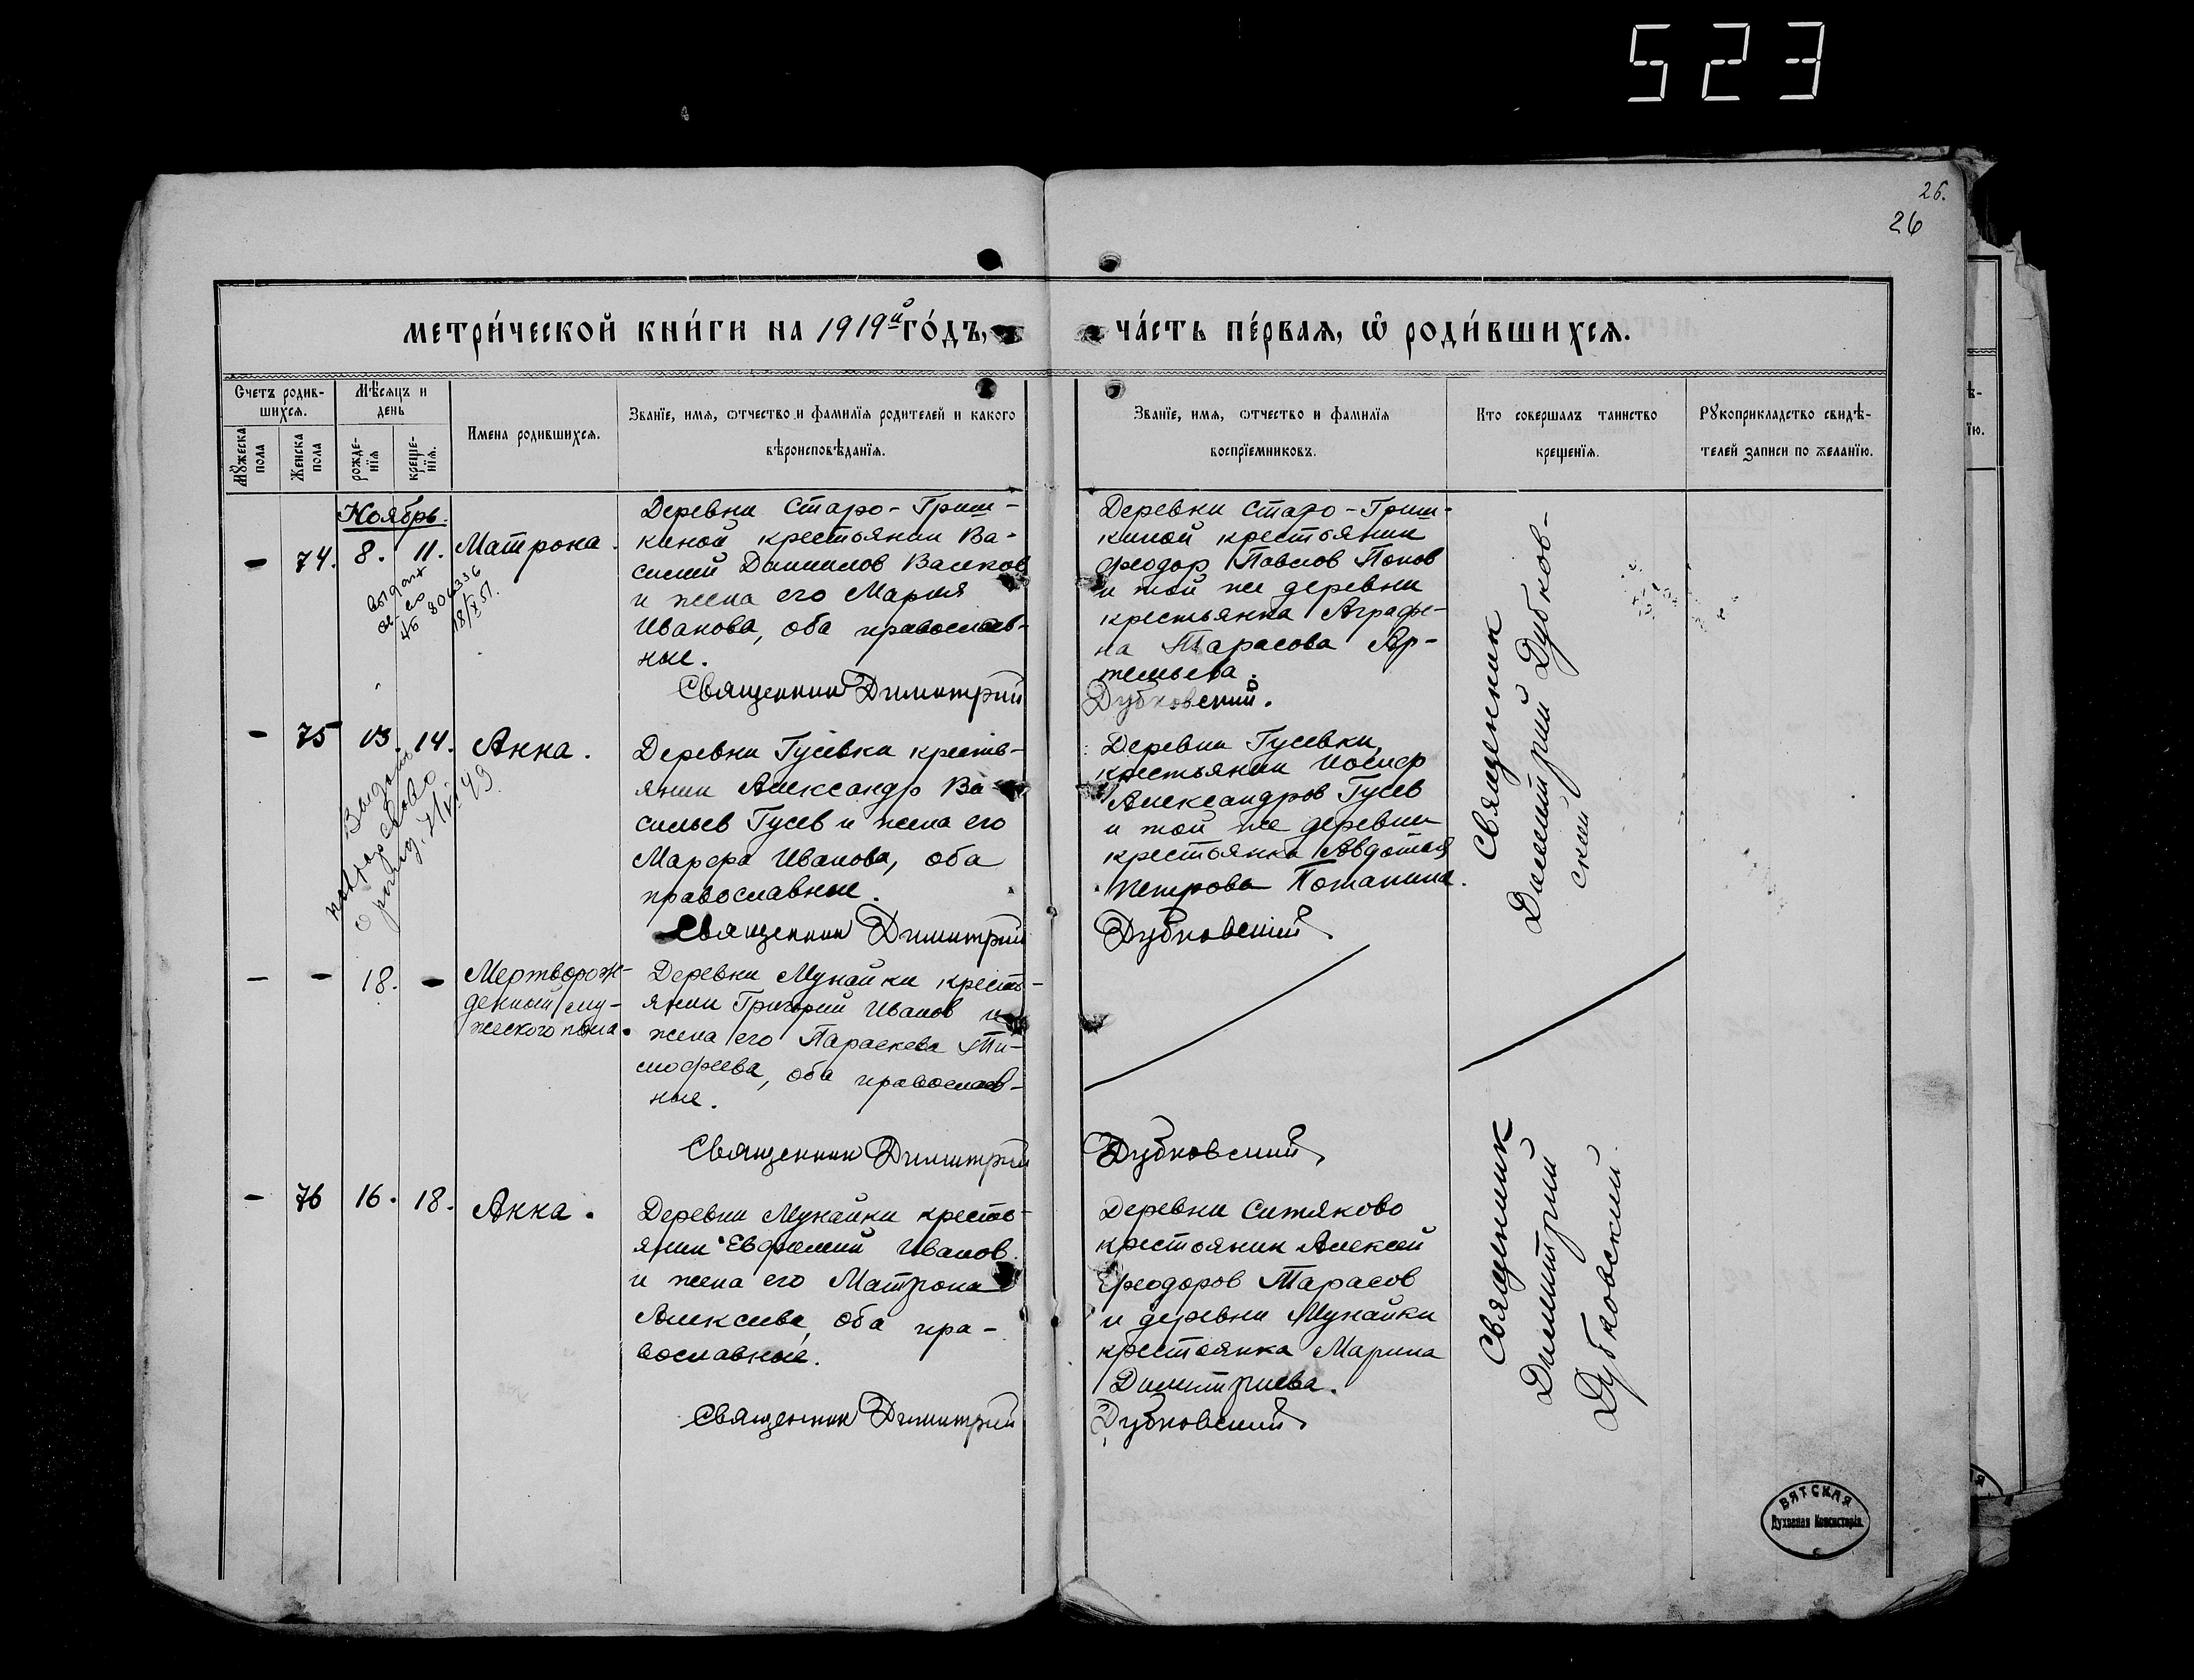 523
26.
26
метри́ческой кни́ги на 1919й го́дъ,
ча́сть пе́рвая, ѡ҆ роди́вшихсѧ.
Счетъ родив-
шихсѧ.
Мѣсѧцъ и
день
Мужеска
пола
Женска
пола
рожде-
нїѧ
креще-
нїѧ.
Имена родившихсѧ.
Званїе, имѧ, ѿчество и фамилїѧ родителей и какого
вѣроисповѣданїѧ.
Званїе, имѧ, ѿчество и фамилїѧ
воспрїемниковъ.
Кто совершалъ таинство
крещенїѧ.
Рукоприкладство свидѣ-
телей записи по желанїю.
Ноябрь.
- 74. 8. 11. Матрона.
Деревни Старо-Гриш-
киной крестьянин Ва-
силий Даниилов Валков
и жена его Мария
Иванова, оба православ-
ные.
Священник Димитрий
Деревни Старо-Гриш-
киной крестьянин
Феодор Павлов Попов
и той же деревни
крестьянка Аграфе-
на Тарасова Ар-
темьева.
Дубковский.
18/X 51.
Священник
Димитрий Дубков-
ский
- 75 13. 14. Анна.
Деревни Гусевки кресть-
янин Александр Ва-
сильев Гусев и жена его
Марфа Иванова, оба
православные.
Священник Димитрий
Деревни Гусевки,
крестьянин Иосиф
Александров Гусев
и той же деревни
крестьянка Авдотия
Петрова Потапина.
Дубковский
Выдано
повторн. св-во
- - 18. - Мертворож-
денный му-
жеского пола.
Деревни Мунайки кресть-
янин Григорий Иванов и
жена его Параскева Ти-
мофеева, оба православ-
ные.
Священник Димитрий
Дубковский
- 76 16. 18. Анна.
Деревни Мунайки кресть-
янин Евфимий Иванов
и жена его Матрона
Алексеева, оба пра-
вославные.
Священник Димитрий
Деревни Ситяково
крестьянин Алексей
Феодоров Тарасов
и деревни Мунайки
крестьянка Марина
Димитриева.
Дубковский
Священник
Димитрий
Дубковский
ВЯТСКАЯ
Духовная Консисторія